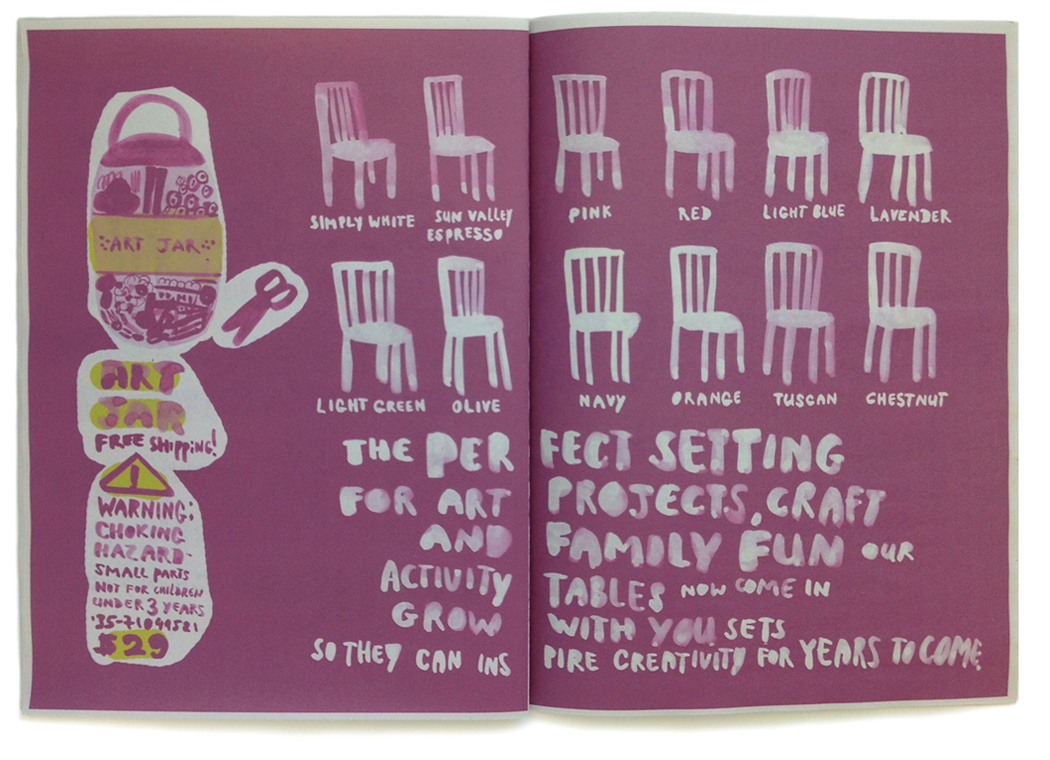 ART JAR
ART
JAR
FREE SHIPPING!
WARNING:
CHOKING
HAZARD-
SMALL PARTS
NOT FOR CHILDREN
UNDER 3 YEARS
'35-71044521
$29
SIMPLY WHITE
SUN VALLEY
ESPRESSO
PINK
RED
LIGHT BLUE
LAVENDER
LIGHT GREEN
OLIVE
NAVY
ORANGE
TUSCAN
CHESTNUT
THE PERFECT SETTING
FOR ART PROJECTS, CRAFT
AND FAMILY FUN OUR
ACTIVITY TABLES NOW COME IN
GROW WITH YOU SETS
SO THEY CAN INSPIRE CREATIVITY FOR YEARS TO COME.